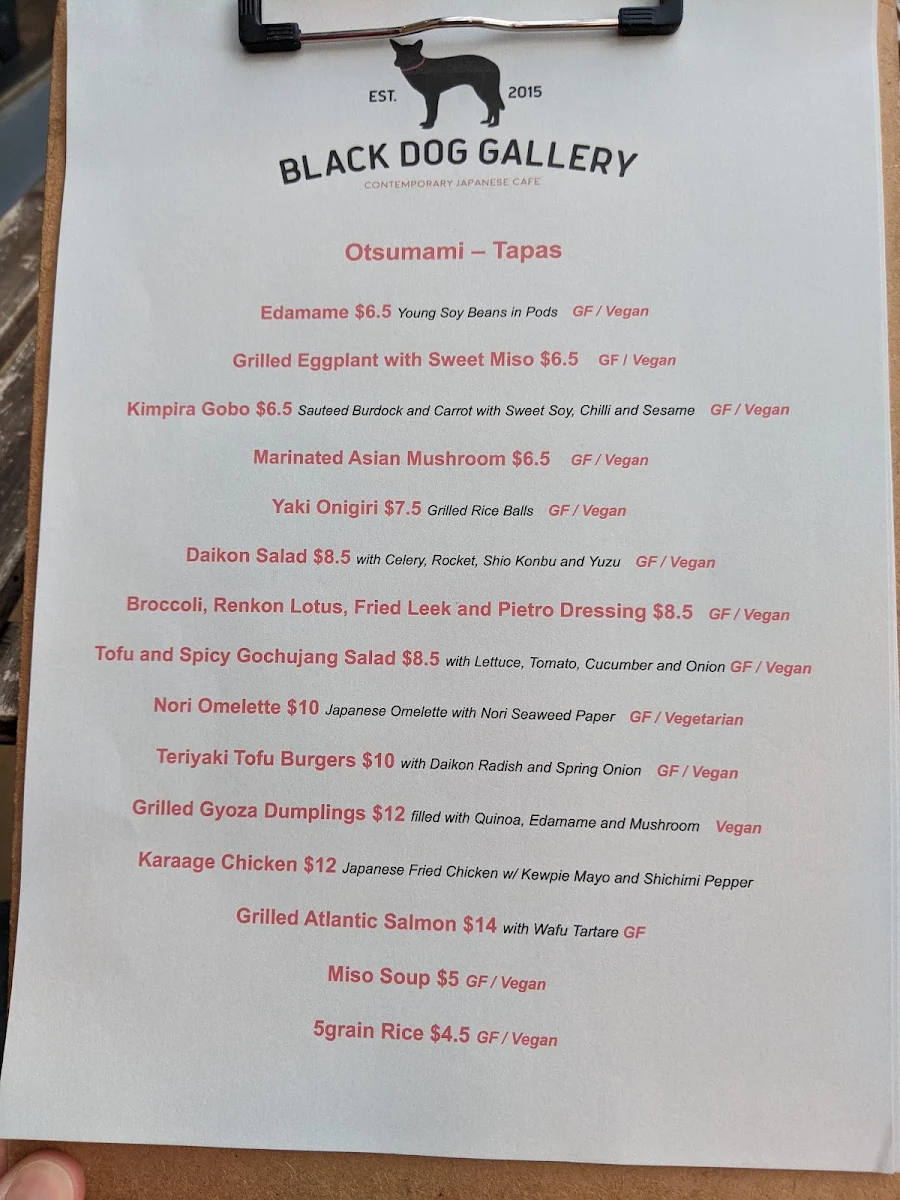 EST. 2015
BLACK DOG GALLERY
CONTEMPORARY JAPANESE CAFE
Otsumami – Tapas
Edamame $6.5 Young Soy Beans in Pods GF / Vegan
Grilled Eggplant with Sweet Miso $6.5 GF / Vegan
Kimpira Gobo $6.5 Sauteed Burdock and Carrot with Sweet Soy, Chilli and Sesame GF / Vegan
Marinated Asian Mushroom $6.5 GF / Vegan
Yaki Onigiri $7.5 Grilled Rice Balls GF / Vegan
Daikon Salad $8.5 with Celery, Rocket, Shio Konbu and Yuzu GF / Vegan
Broccoli, Renkon Lotus, Fried Leek and Pietro Dressing $8.5 GF / Vegan
Tofu and Spicy Gochujang Salad $8.5 with Lettuce, Tomato, Cucumber and Onion GF / Vegan
Nori Omelette $10 Japanese Omelette with Nori Seaweed Paper GF / Vegetarian
Teriyaki Tofu Burgers $10 with Daikon Radish and Spring Onion GF / Vegan
Grilled Gyoza Dumplings $12 filled with Quinoa, Edamame and Mushroom Vegan
Karaage Chicken $12 Japanese Fried Chicken w/ Kewpie Mayo and Shichimi Pepper
Grilled Atlantic Salmon $14 with Wafu Tartare GF
Miso Soup $5 GF / Vegan
5grain Rice $4.5 GF / Vegan